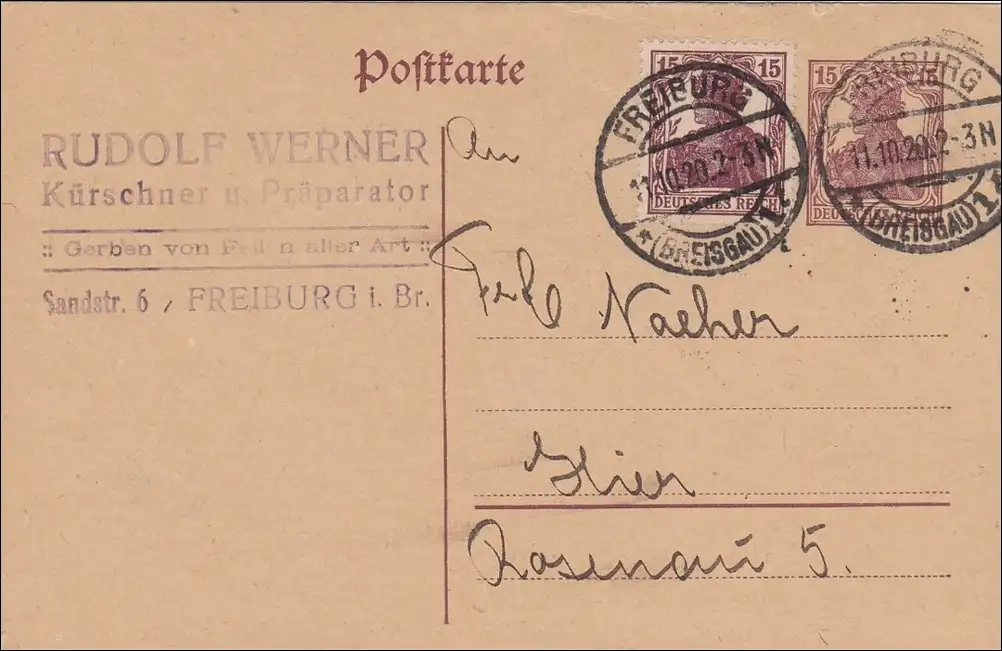 Postkarte
RUDOLF WERNER
Kürschner u. Präparator
:: Gerben von Fellen aller Art ::
Sandstr. 6, FREIBURG i. Br.
15 15
DEUTSCHES REICH
FREIBURG
11.10.20.2-3N
*(BREISGAU)1
15 15
FREIBURG
11.10.20.2-3N
*(BREISGAU)1
An
Frl Naeher
Hier
Rosenau 5.